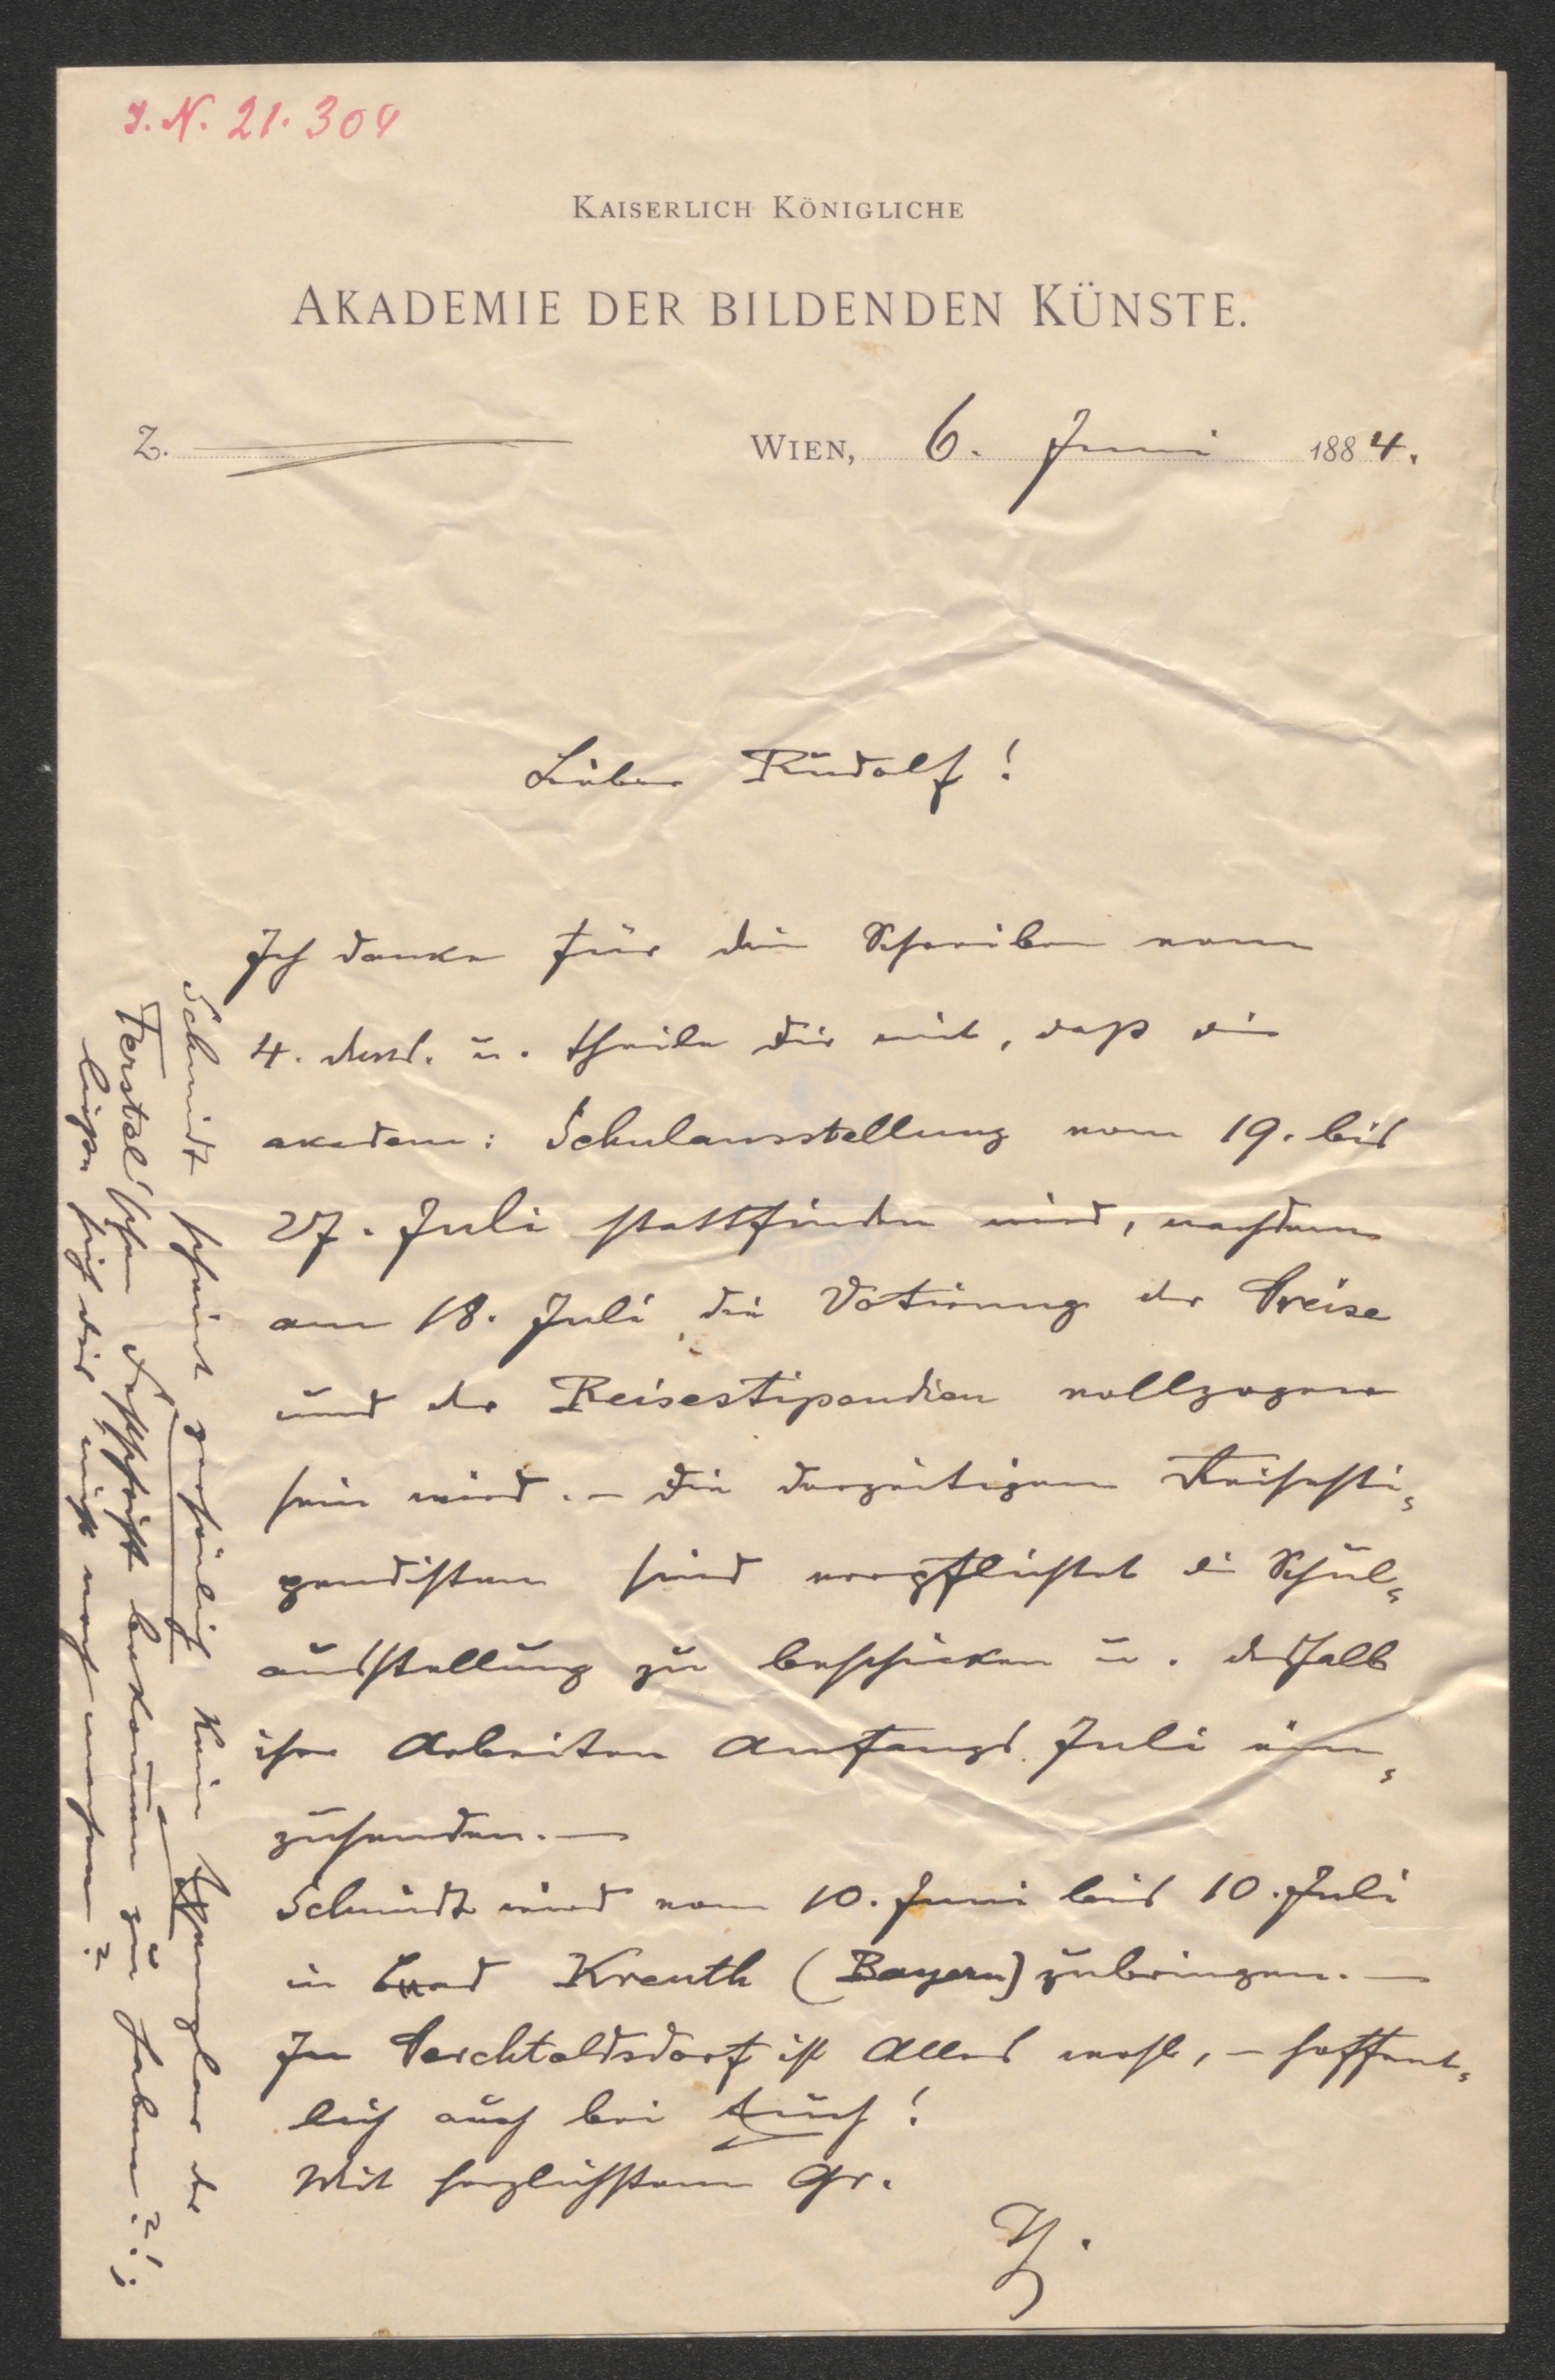 I. N. 21.304
KAISERLICH KÖNIGLICHE
AKADEMIE DER BILDENDEN KÜNSTE.
Z.
WIEN, 6. Juni 1884.
Lieber Rudolf!
Ich danke für dein Schreiben vom
4. dess. u. theile dir mit, daß die
akadem: Schulausstellung vom 19. bis
27. Juli stattfinden wird, nachdem
am 18. Juli die Votirung der Preise
und der Reisestipendien vollzogen
sein wird. – Die derzeitigen Reisesti-
pendisten sind verpflichtet die Schul-
ausstellung zu beschicken u. deshalb
ihre Arbeiten Anfangs Juli ein-
zusenden. —
Schmidt wird vom 10. Juni bis 10. Juli
in Bad Kreuth (Bayern) zubringen. —
In Perchtoldsdorf ist Alles wohl, – hoffent-
lich auch bei Euch!
Mit herzlichstem Gr.
Schmidt scheint persönlich kein Exemplar der
Ferstel'schen Festschrift bekommen zu haben?!;
ließe sich dies nicht noch machen?